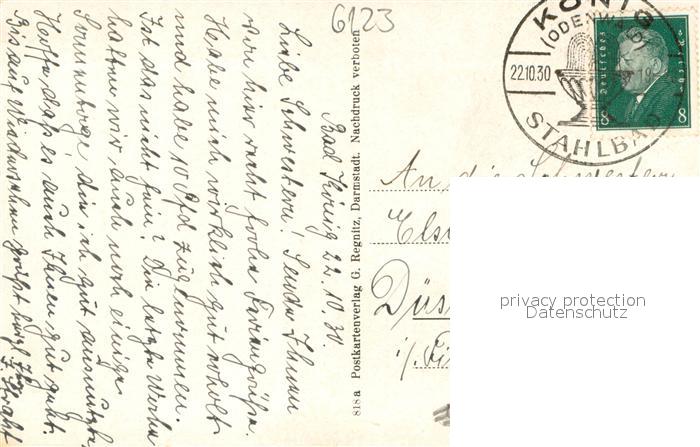 6123
Bad König 22.10.30.
Liebe Schwestern! Sende Ihnen
von hier recht frohe Feriengrüße.
Habe mich wirklich gut erholt
und habe 10 Pfd zugenommen.
Ist das nicht fein? Die letzte Woche
hatten wir auch noch einige
Sonnentage die ich gut ausnutzte.
Hoffe daß es auch Ihnen gut geht.
Bis auf Wiedersehen grüßt herzl. Ihre
818a Postkartenverlag G. Regnitz, Darmstadt. Nachdruck verboten
KÖNIG
(ODENWALD)
22.10.30
STAHLBAD
Deutsches Reich
8 8
An die Schwestern
Els
Düs
i/
privacy protection
Datenschutz